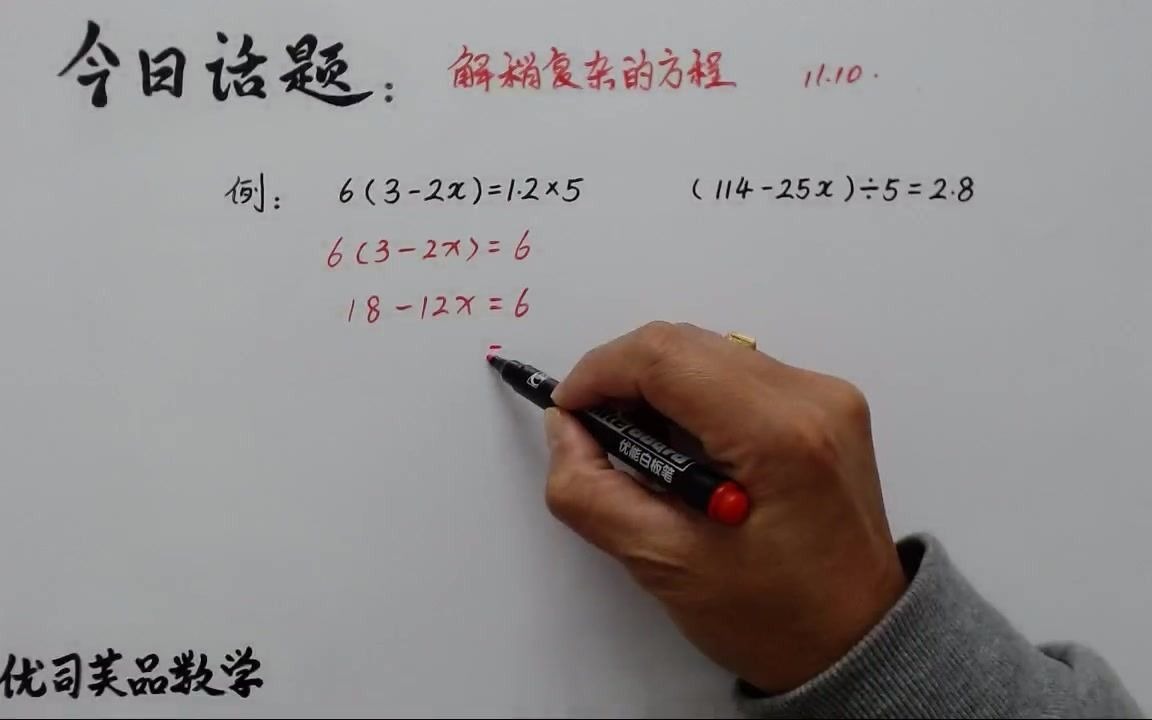 今日话题: 解稍复杂的方程 11.10.
例: 6(3-2x)=1.2×5 (114-25x)÷5=2.8
6(3-2x)=6
18-12x=6
=
优能白板笔
优司芙品数学